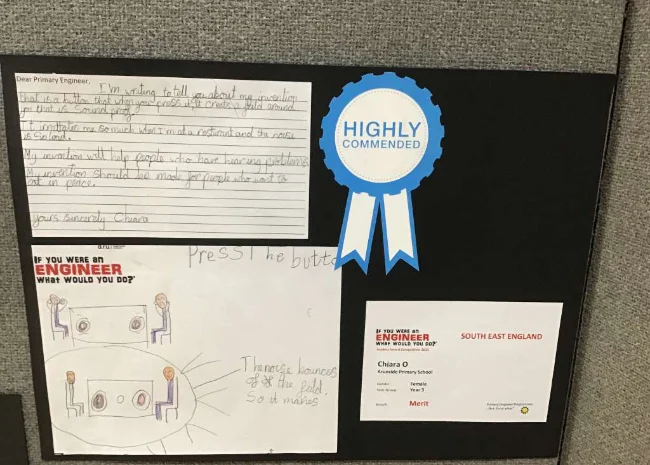 Dear Primary Engineer,
I'm writing to tell you about my invention
that is a button that when you press it it create a feild around
you that is sound prof.
It irritates me so much when I'm at a restront and the noise
is so loud.
My invention will help people who have hearing problems
My invention should be made for people who want to
eat in peace.
yours sincerely Chiara
HIGHLY
COMMENDED
IF YOU WERE AN
ENGINEER
WHAT WOULD YOU DO?
Press The butto
The noise bounces
of the feild.
So it makes
IF YOU WERE AN
ENGINEER
WHAT WOULD YOU DO?
SOUTH EAST ENGLAND
Chiara O
Arunside Primary School
Gender: Female
Year Group: Year 5
Result: Merit